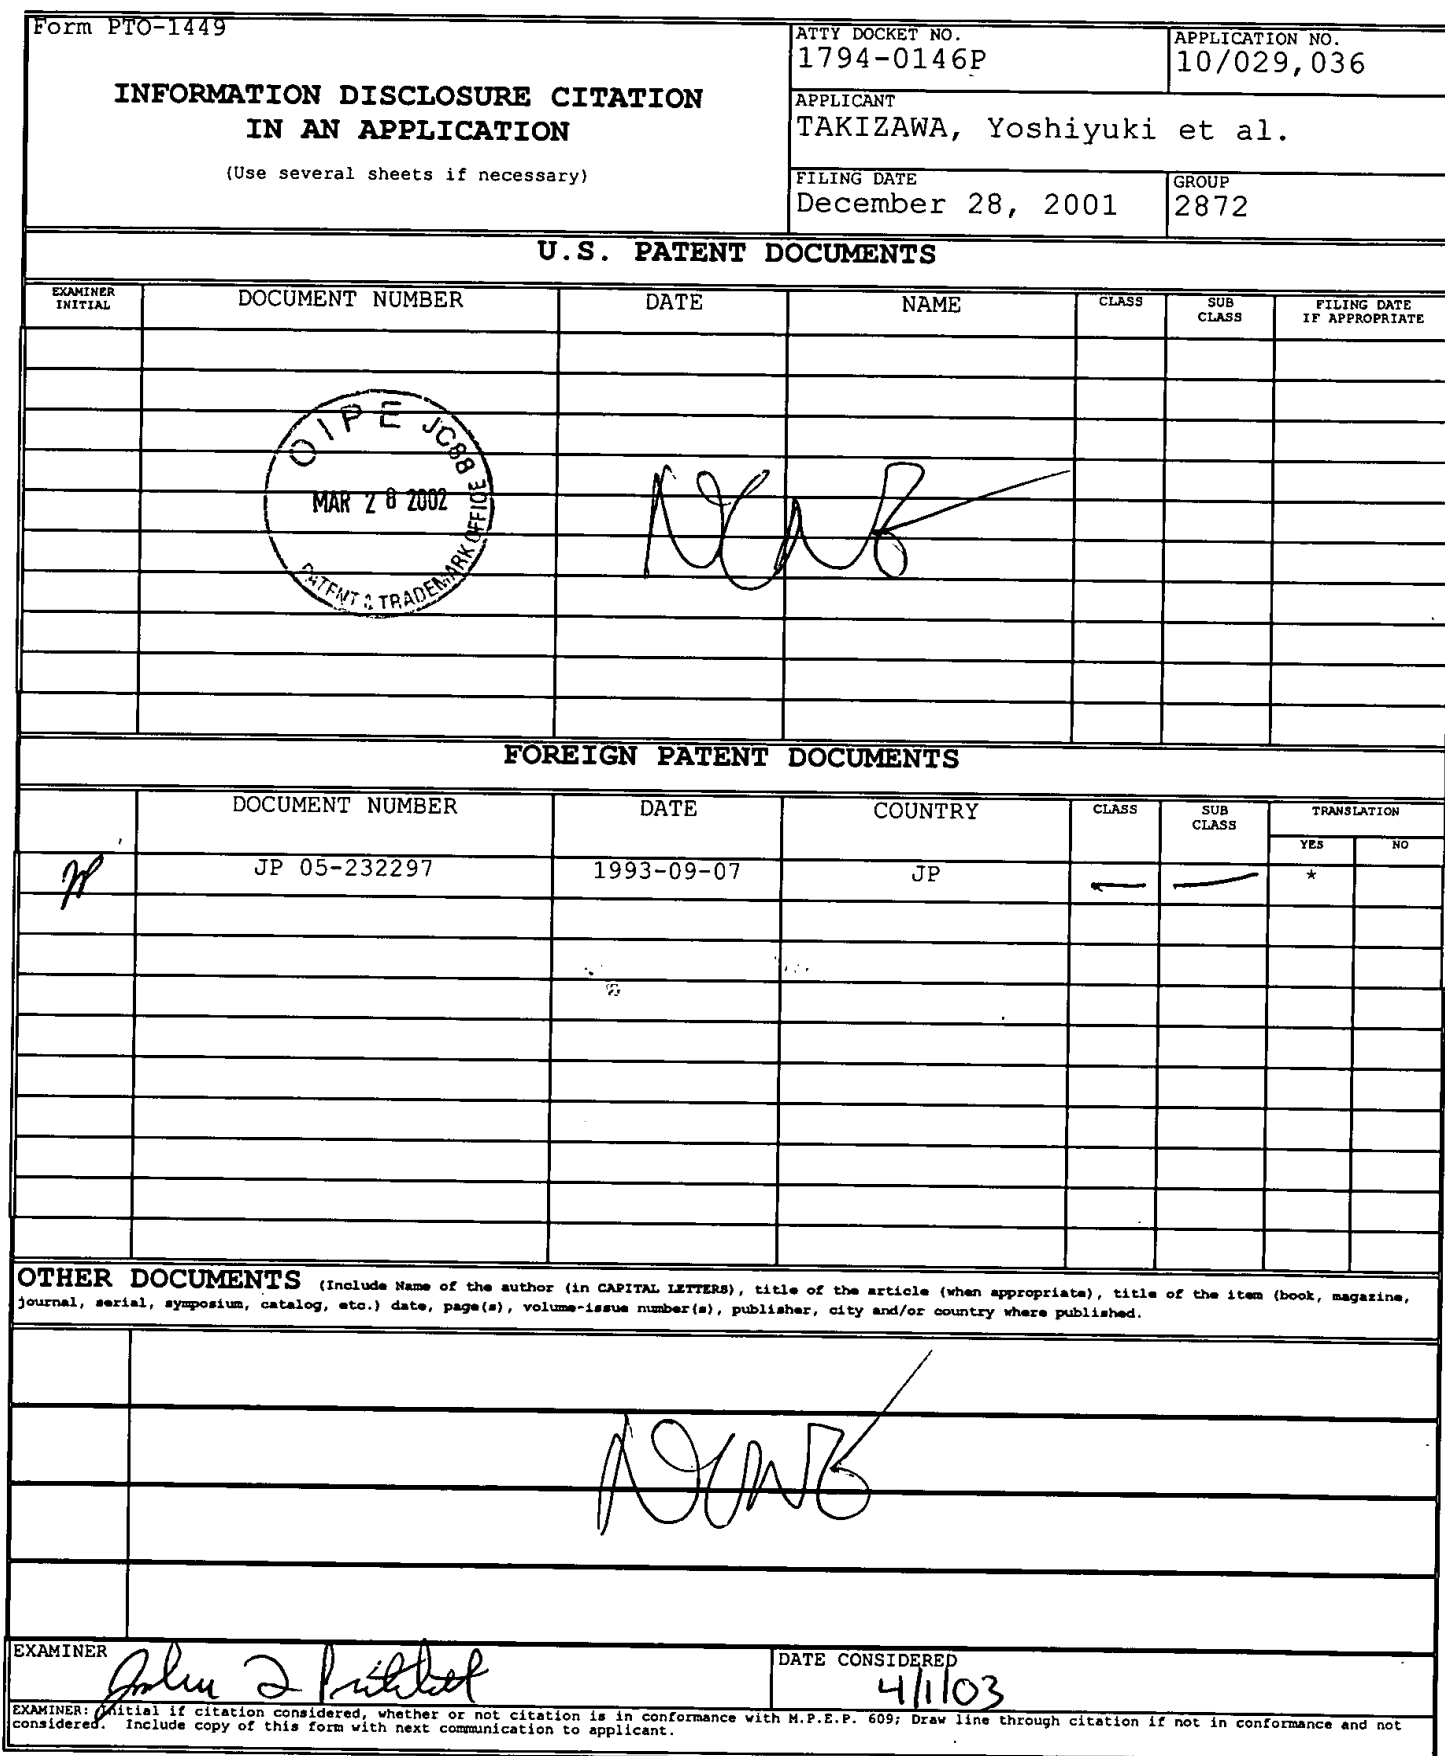 Form PTO-1449
INFORMATION DISCLOSURE CITATION
IN AN APPLICATION
(Use several sheets if necessary)
ATTY DOCKET NO.
1794-0146P
APPLICATION NO.
10/029,036
APPLICANT
TAKIZAWA, Yoshiyuki et al.
FILING DATE
December 28, 2001
GROUP
2872
U.S. PATENT DOCUMENTS
EXAMINER
INITIAL
DOCUMENT NUMBER
DATE
NAME
CLASS
SUB
CLASS
FILING DATE
IF APPROPRIATE
OIPE JC88
MAR 28 2002
PATENT & TRADEMARK OFFICE
NONE
FOREIGN PATENT DOCUMENTS
DOCUMENT NUMBER
DATE
COUNTRY
CLASS
SUB
CLASS
TRANSLATION
YES
NO
JP 05-232297
1993-09-07
JP
*
OTHER DOCUMENTS (Include Name of the author (in CAPITAL LETTERS), title of the article (when appropriate), title of the item (book, magazine,
journal, serial, symposium, catalog, etc.) date, page(s), volume-issue number(s), publisher, city and/or country where published.
NONE
EXAMINER
DATE CONSIDERED
4/1/03
EXAMINER: Initial if citation considered, whether or not citation is in conformance with M.P.E.P. 609; Draw line through citation if not in conformance and not
considered. Include copy of this form with next communication to applicant.